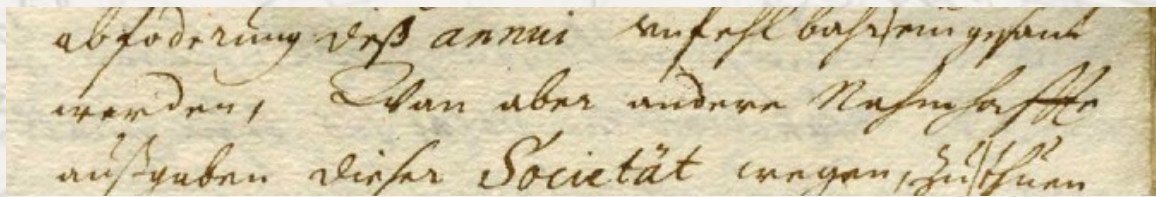 abfoderung deß annui unfehlbahr eingesant
werden, Wan aber andere Nahmhaffte
außgaben dieser Societät wegen, zu thuen